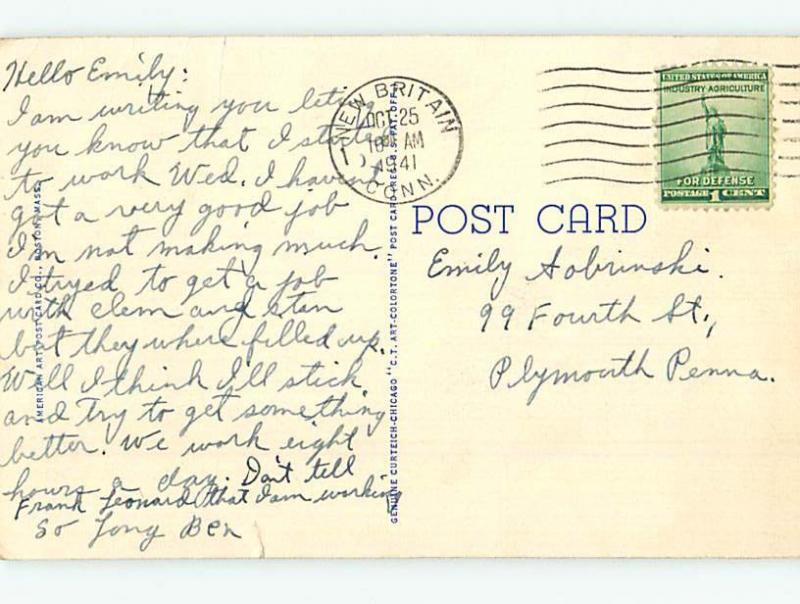 Hello Emily:
I am writing you leting
you know that I started
to work Wed. I havent
got a very good job
I'm not making much.
I tryed to get a job
with clem and stan
but they where filled up.
Well I think I'll stick
and try to get something
better. We work eight
hours a day. Don't tell
Frank Leonard that I am working
So Long Ben
AMERICAN ART POST CARD CO., BOSTON, MASS.
GENUINE CURTEICH-CHICAGO "C.T. ART-COLORTONE" POST CARD (REG. U.S. PAT. OFF.)
NEW BRITAIN
OCT 25
AM
1941
CONN.
UNITED STATES OF AMERICA
INDUSTRY AGRICULTURE
FOR DEFENSE
POSTAGE 1 CENT
POST CARD
Emily Sobrinski.
99 Fourth St.,
Plymouth Penna.